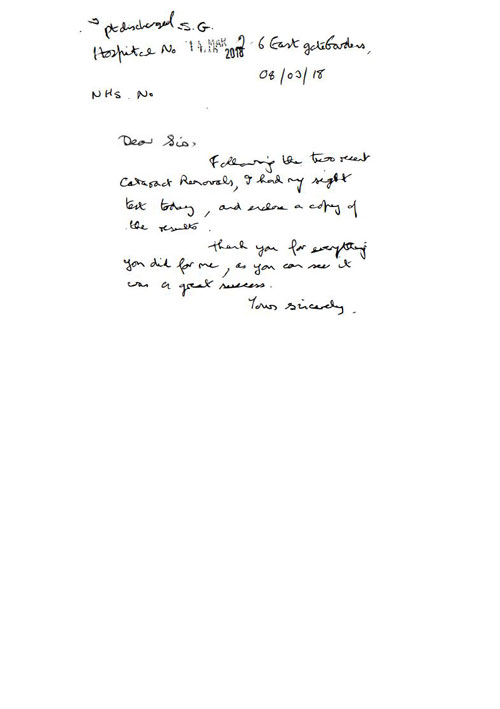 pt discharged S.G.
Hospital No 14 MAR 2018 6 East gate Gardens,
08/03/18
NHS. No
Dear Sis,
Following the two recent
Cataract Removals, I had my sight
test today, and enclose a copy of
the results.
Thank you for everything
you did for me, as you can see it
was a great success.
Yours sincerely.